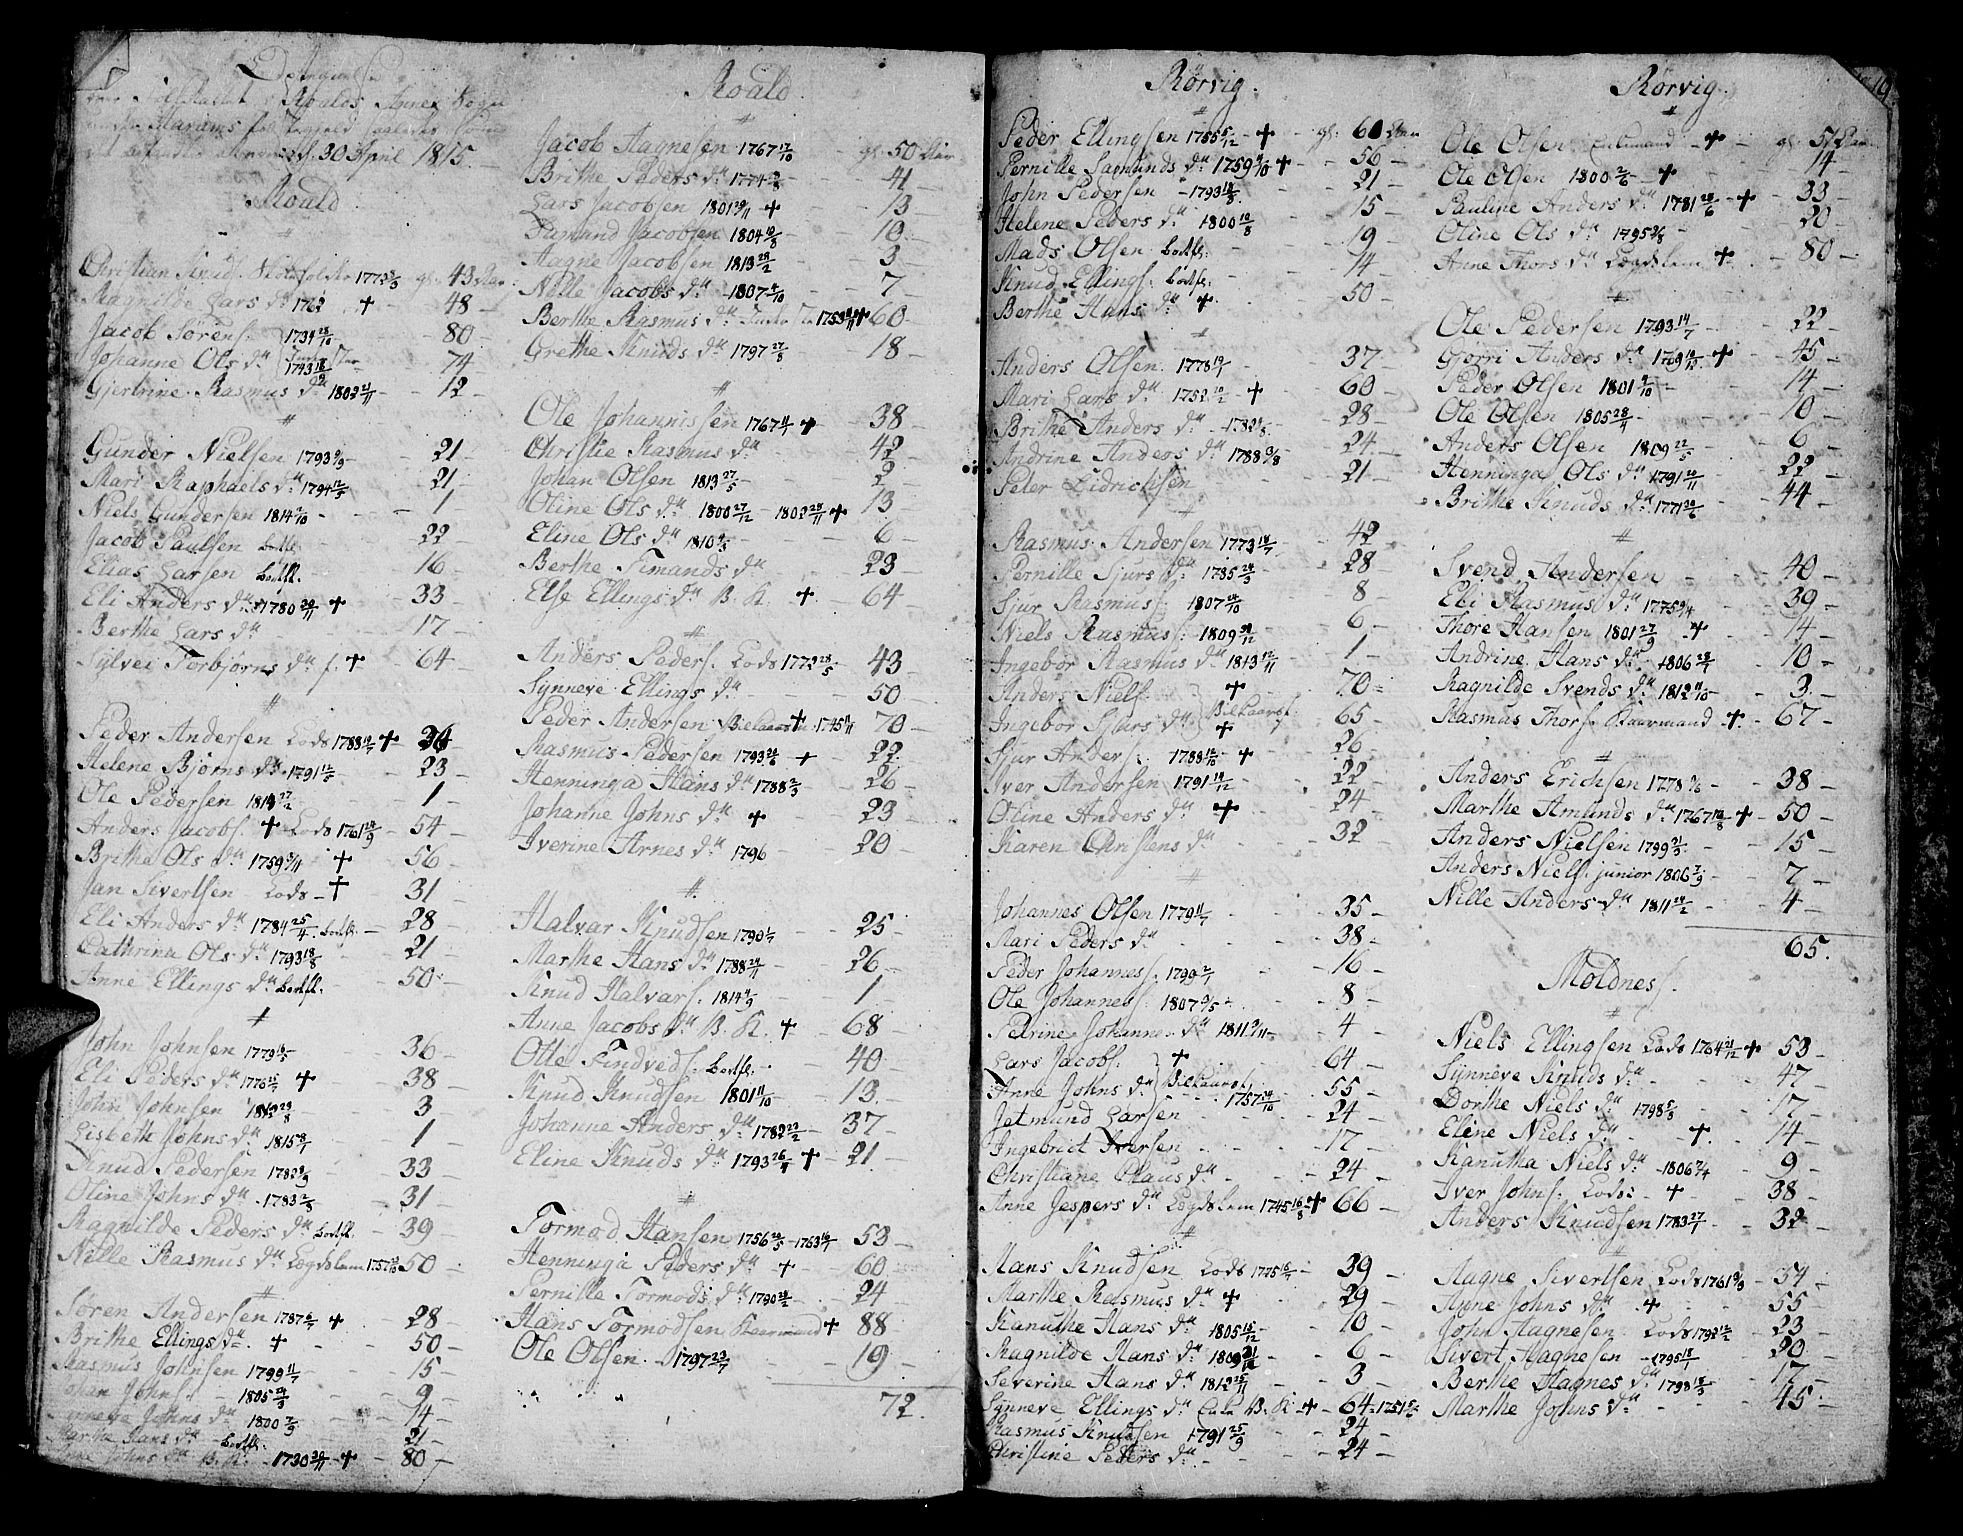 Roalds Annex Sogn
30 April 1815.
Roald
Christian Knud 1773 gl. 43 Aar
Ragnilde Lars dtr 1762 + 48
Jacob Sørens. 1734 28/10 80
Johanne Ols dtr 1743 18/9 74
Gjertrine Rasmus dtr 1802 21/11 12
#
Gunder Nielsen 1793 9/9 21
Mari Raphaels dtr 1794 12/5 21
Niels Gundersen 1814 2/10 1
Jacob Paulsen 22
Elias Larsen 16
Eli Anders dtr 1780 20/11 + 33
Berthe Lars dtr 17
Sylvei Torbjørns dtr f. + 64
#
Peder Andersen Lods 1788 + 26
Helene Bjørns dtr 1791 12/5 23
Ole Pedersen 1813 27/12 1
Anders Jacobs. + Lods 1761 24/9 54
Brithe Ols dtr 1759 9/11 + 56
Jan Sivertsen Lods + 31
Eli Anders dtr 1784 25/4 28
Cathrina Ols dtr 1793 18/8 21
Anne Ellings dtr 50
#
John Johnsen 1779 36
Eli Peders dtr 1776 + 38
John Johnsen 1812 29/8 3
Lisbeth Johns dtr 1815 1
Knud Pedersen 1782 33
Oline Johns dtr 1783 31
Ragnilde Peders dtr 39
Nille Rasmus dtr Lægdslem 1757 50
#
Søren Andersen 1787 + 28
Brithe Ellings dtr + 50
Rasmus Johnsen 1799 11/7 15
Johan Johns. 1805 24/3 9
Synneve Johns dtr 1800 7/3 14
Marthe Hans dtr 21
Anne Johns dtr B. K. 1730 30/11 + 80
Roald.
#
Jacob Aagnesen 1767 17/10 gl. 50 Aar
Brithe Peders dtr 1774 41
Lars Jacobsen 1801 29/11 + 13
Samund Jacobsen 1804 10/3 10
Aagne Jacobsen 1813 28/2 3
Nille Jacobs dtr 1807 4/10 7
Berthe Rasmus dtr 1753 + 60
Grethe Knuds dtr 1797 27/8 18
#
Ole Johannissen 1767 + 38
Christie Rasmus dtr 42
Johan Olsen 1813 27/5 2
Oline Ols dtr 1800 27/12 - 1802 28/11 + 13
Eline Ols dtr 1810 6
Berthe Simands dtr 23
Else Ellings dtr B. K. + 64
#
Anders Peders. Lods 1772 28/5 43
Synneve Ellings dtr 50
Peder Andersen + 1745 70
Rasmus Pedersen 1793 24/6 + 22
Henninga Hans dtr 1788 2/3 26
Johanne Johns dtr + 23
Iverine Arnes dtr 1796 20
#
Halvar Knudsen 1790 25
Marthe Hans dtr 1788 24/11 26
Knud Halvars. 1814 4/9 1
Anne Jacobs dtr B. K. + 68
Otte Findveds. 40
Knud Knudsen 1801 11/10 13
Johanne Anders dtr 1782 22/2 37
Eline Knuds dtr 1793 26/4 + 21
#
Tormod Hansen 1756 26/5 - 1763 53
Henninga Peders dtr + 60
Pernille Tormods dtr 1790 28/2 24
Hans Tormodsen Kaarmand + 88
Ole Olsen 1797 23/7 19
72.
Rørvig.
#
Peder Ellingsen 1755 5/12 + gl. 60 Aar
Pernille Samunds dtr 1759 + 56
John Pedersen 1793 18/8 21
Helene Peders dtr 1800 10/8 15
Mads Olsen 19
Knud Ellings. 14
Berthe Hans dtr + 50
#
Anders Olsen 1778 19/1 37
Mari Lars dtr 1752 10/12 + 60
Brithe Anders dtr 1782 28
Andrine Anders dtr 1788 9/8 24
Peter Didrichsen 21
#
Rasmus Andersen 1773 18/7 42
Pernille Sjurs dtr 1785 24/3 28
Sjur Rasmus. 1807 24/10 8
Niels Rasmus. 1809 6
Ingebor Rasmus dtr 1813 12/11 1
Anders Niels. + 70
Ingebor Sjurs dtr + 65
Sjur Anders. 1788 12/10 + 26
Iver Andersen 1791 14/12 22
Oline Anders dtr + 24
Karen Christens dtr 32
#
Johannes Olsen 1779 11/7 35
Mari Peders dtr 38
Peder Johannes. 1799 2/1 16
Ole Johannes. 1807 9/5 8
Petrine Johannes dtr 1811 9/11 4
Lars Jacobs. + 64
Anne Johns dtr 1757 24/10 55
Jetmund Larsen 24
Ingebrict Iversen 17
Christiane Claus dtr 24
Anne Jespers dtr Lægdslem 1745 16/8 + 66
#
Hans Knudsen Lods 1775 39
Marthe Rasmus dtr + 29
Kanuthe Hans dtr 1805 15/12 10
Ragnilde Hans dtr 1809 6
Severine Hans dtr 1812 15/11 3
Synneve Ellings dtr B. K. + 64 1751
Rasmus Knudsen 1791 25/9 24
Christine Peders dtr 24
Rørvig.
#
Ole Olsen + gl. 51 Aar
Ole Olsen 1800 2/6 + 14
Pauline Anders dtr 1781 28/6 + 33
Oline Ols dtr 1795 20
Anne Thors dtr Lægdslem + 80
#
Ole Pedersen 1793 14/7 22
Gjørri Anders dtr 1769 + 45
Peder Olsen 1801 4/10 14
Ole Olsen 1805 28/4 10
Anders Olsen 1809 22/5 6
Henninga Ols dtr 1791 20/11 22
Brithe Knuds dtr 1771 24/6 44
#
Svend Andersen 40
Eli Rasmus dtr 1775 9/4 39
Thore Hansen 1801 27/9 + 14
Andrine Hans dtr 1806 28/7 10
Ragnilde Svends dtr 1812 3
Rasmus Thors. Kaarmand + 67
#
Anders Erichsen 1778 38
Marthe Amunds dtr 1767 + 50
Anders Nielsen 1799 21/3 15
Anders Niels. junior 1806 7/9 7
Nille Anders dtr 1811 28/2 4
65.
Moldnes.
#
Niels Ellingsen Lods 1764 21/12 + 53
Synneve Knuds dtr 47
Dorthe Niels dtr 1798 5/3 17
Eline Niels dtr + 14
Kanutha Niels dtr 1806 7/4 9
Iver Johns. Lods + 38
Anders Knudsen 1783 27/1 32
#
Aagne Sivertsen Lods 1761 54
Anne Johns dtr + 55
John Aagnesen Lods 1792 12/12 23
Sivert Aagnesen 1795 18/1 20
Berthe Aagnes dtr 1798 18/3 17
Marthe Johns dtr 45